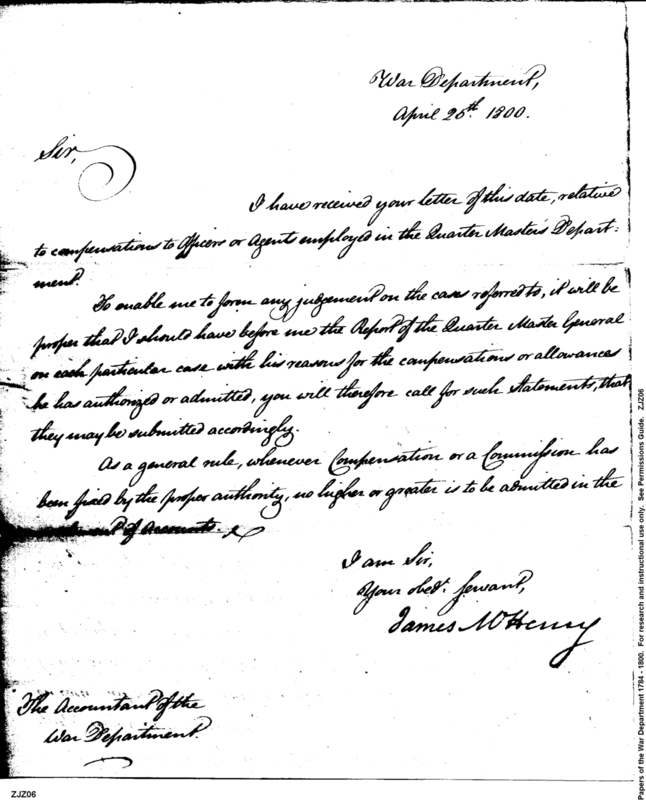 War Department,
April 26th. 1800.
Sir,
I have received your letter of this date, relative
to compensations to Officers or Agents employed in the Quarter Master's Depart:
ment.
To enable me to form any judgement on the cases referred to, it will be
proper that I should have before me the Report of the Quarter Master General
on each particular case with his reasons for the compensations or allowances
he has authorized or admitted, you will therefore call for such Statements, that
they may be submitted accordingly.
As a general rule, whenever Compensation or a Commission has
been fixed by the proper authority, no higher or greater is to be admitted in the
of Accounts.
I am Sir,
Your obedt. servant,
James McHenry
The Accountant of the
War Department
ZJZ06
Papers of the War Department 1784 - 1800. For research and instructional use only. See Permissions Guide. ZJZ06